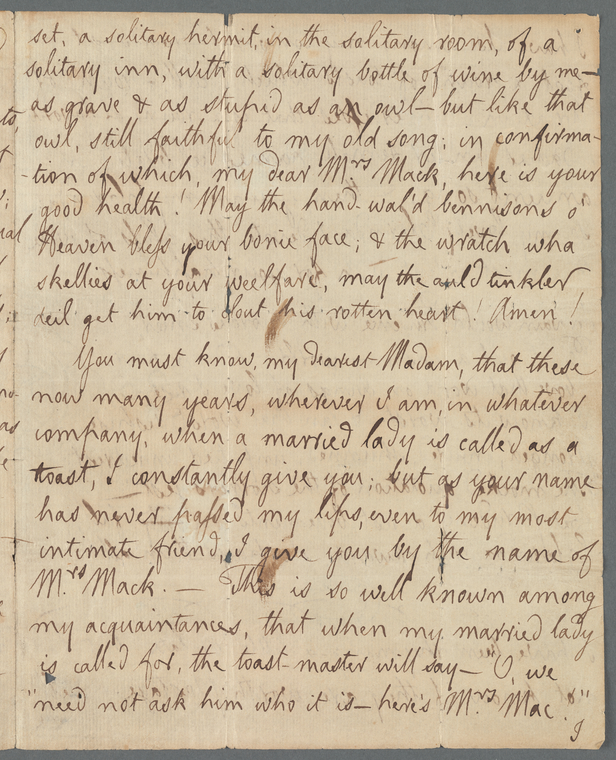 set, a solitary hermit, in the solitary room, of a
solitary inn, with a solitary bottle of wine by me —
as grave & as stupid as an owl — but like that
owl, still faithful to my old song; in confirma-
-tion of which, my dear Mrs Mack, here is your
good health! May the hand-wal'd bennisons o'
Heaven bless your bonie face; & the wratch wha
skellies at your weelfare, may the auld tinkler
deil get him to clout his rotten heart! Amen!
You must know, my dearest Madam, that these
now many years, wherever I am, in whatever
company, when a married lady is called as a
toast, I constantly give you; but as your name
has never passed my lips, even to my most
intimate friend, I give you by the name of
Mrs Mack. — This is so well known among
my acquaintances, that when my married lady
is called for, the toast-master will say — "O, we
"need not ask him who it is — here's Mrs Mac!"
I